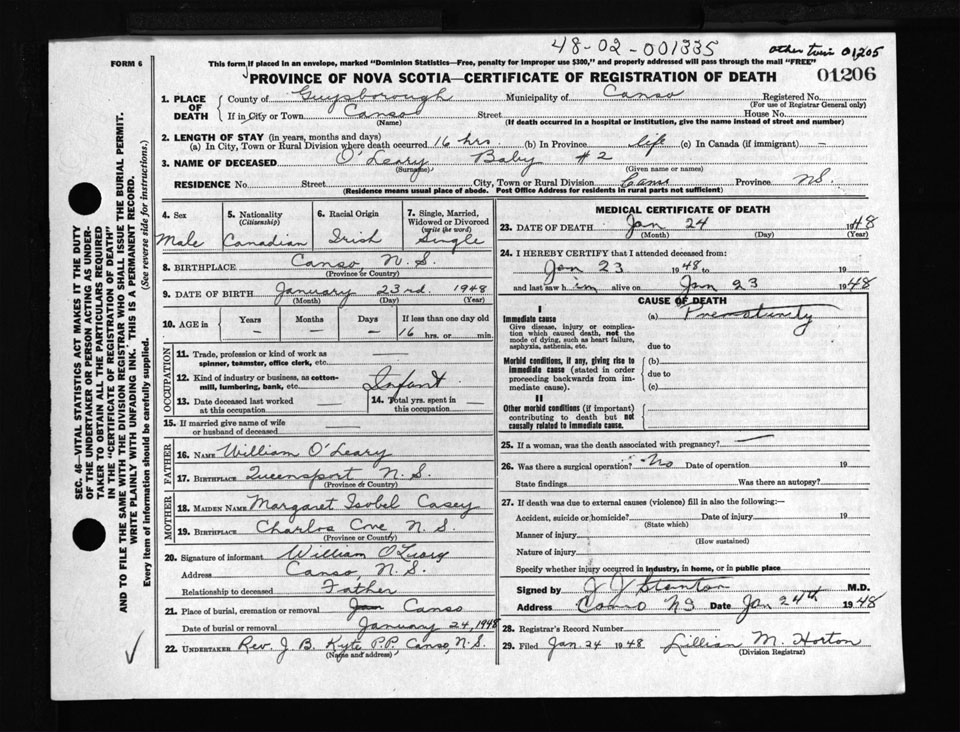 48-02-001335
other twin 01205
FORM 6
This form, if placed in an envelope, marked "Dominion Statistics—Free, penalty for improper use $300," and properly addressed will pass through the mail "FREE"
PROVINCE OF NOVA SCOTIA—CERTIFICATE OF REGISTRATION OF DEATH
01206
1. PLACE OF DEATH
County of Guysborough Municipality of Canso Registered No.
(For use of Registrar General only)
If in City or Town Canso Street House No.
(Name) (If death occurred in a hospital or institution, give the name instead of street and number)
2. LENGTH OF STAY (in years, months and days)
(a) In City, Town or Rural Division where death occurred 16 hrs (b) In Province life (c) In Canada (if immigrant) —
3. NAME OF DECEASED O'Leary Baby #2
(Surname) (Given name or names)
RESIDENCE No. Street City, Town or Rural Division Canso Province N.S.
(Residence means usual place of abode. Post Office Address for residents in rural parts not sufficient)
4. Sex Male
5. Nationality (Citizenship) Canadian
6. Racial Origin Irish
7. Single, Married, Widowed or Divorced (write the word) Single
8. BIRTHPLACE Canso N.S.
(Province or Country)
9. DATE OF BIRTH January 23rd. 1948
(Month) (Day) (Year)
10. AGE in Years Months Days If less than one day old
— — — 16 hrs. or min.
OCCUPATION
11. Trade, profession or kind of work as spinner, teamster, office clerk, etc. —
12. Kind of industry or business, as cotton-mill, lumbering, bank, etc. Infant
13. Date deceased last worked at this occupation —
14. Total yrs. spent in this occupation —
15. If married give name of wife or husband of deceased —
FATHER
16. NAME William O'Leary
17. BIRTHPLACE Queensport N.S.
(Province or Country)
MOTHER
18. MAIDEN NAME Margaret Isobel Casey
19. BIRTHPLACE Charlos Cove N.S.
(Province or Country)
20. Signature of informant William O'Leary
Address Canso, N.S.
Relationship to deceased Father
21. Place of burial, cremation or removal Jan Canso
Date of burial or removal January 24, 1948
22. UNDERTAKER Rev. J. B. Kyte P.P. Canso, N.S.
(Name and address)
MEDICAL CERTIFICATE OF DEATH
23. DATE OF DEATH Jan 24 1948
(Month) (Day) (Year)
24. I HEREBY CERTIFY that I attended deceased from:
Jan 23 1948 to 19
and last saw him alive on Jan 23 1948
CAUSE OF DEATH
I
Immediate cause (a) Prematurity
Give disease, injury or complication which caused death, not the mode of dying, such as heart failure, asphyxia, asthenia, etc.
due to
Morbid conditions, if any, giving rise to immediate cause (stated in order proceeding backwards from immediate cause).
(b)
due to
(c)
II
Other morbid conditions (if important) contributing to death but not causally related to immediate cause.
25. If a woman, was the death associated with pregnancy? —
26. Was there a surgical operation? No Date of operation 19
State findings Was there an autopsy?
27. If death was due to external causes (violence) fill in also the following:—
Accident, suicide or homicide? Date of injury 19
(State which)
Manner of injury
(How sustained)
Nature of injury
Specify whether injury occurred in industry, in home, or in public place
Signed by J J Stanton M.D.
Address Canso NS Date Jan 24th 1948
28. Registrar's Record Number
29. Filed Jan 24 1948 Lillian M. Horton
(Division Registrar)
SEC. 46—VITAL STATISTICS ACT MAKES IT THE DUTY
OF THE UNDERTAKER OR PERSON ACTING AS UNDER-
TAKER TO OBTAIN ALL THE PARTICULARS REQUIRED
IN THE "CERTIFICATE OF REGISTRATION OF DEATH"
AND TO FILE THE SAME WITH THE DIVISION REGISTRAR WHO SHALL ISSUE THE BURIAL PERMIT.
WRITE PLAINLY WITH UNFADING INK. THIS IS A PERMANENT RECORD.
Every item of information should be carefully supplied. (See reverse side for instructions.)